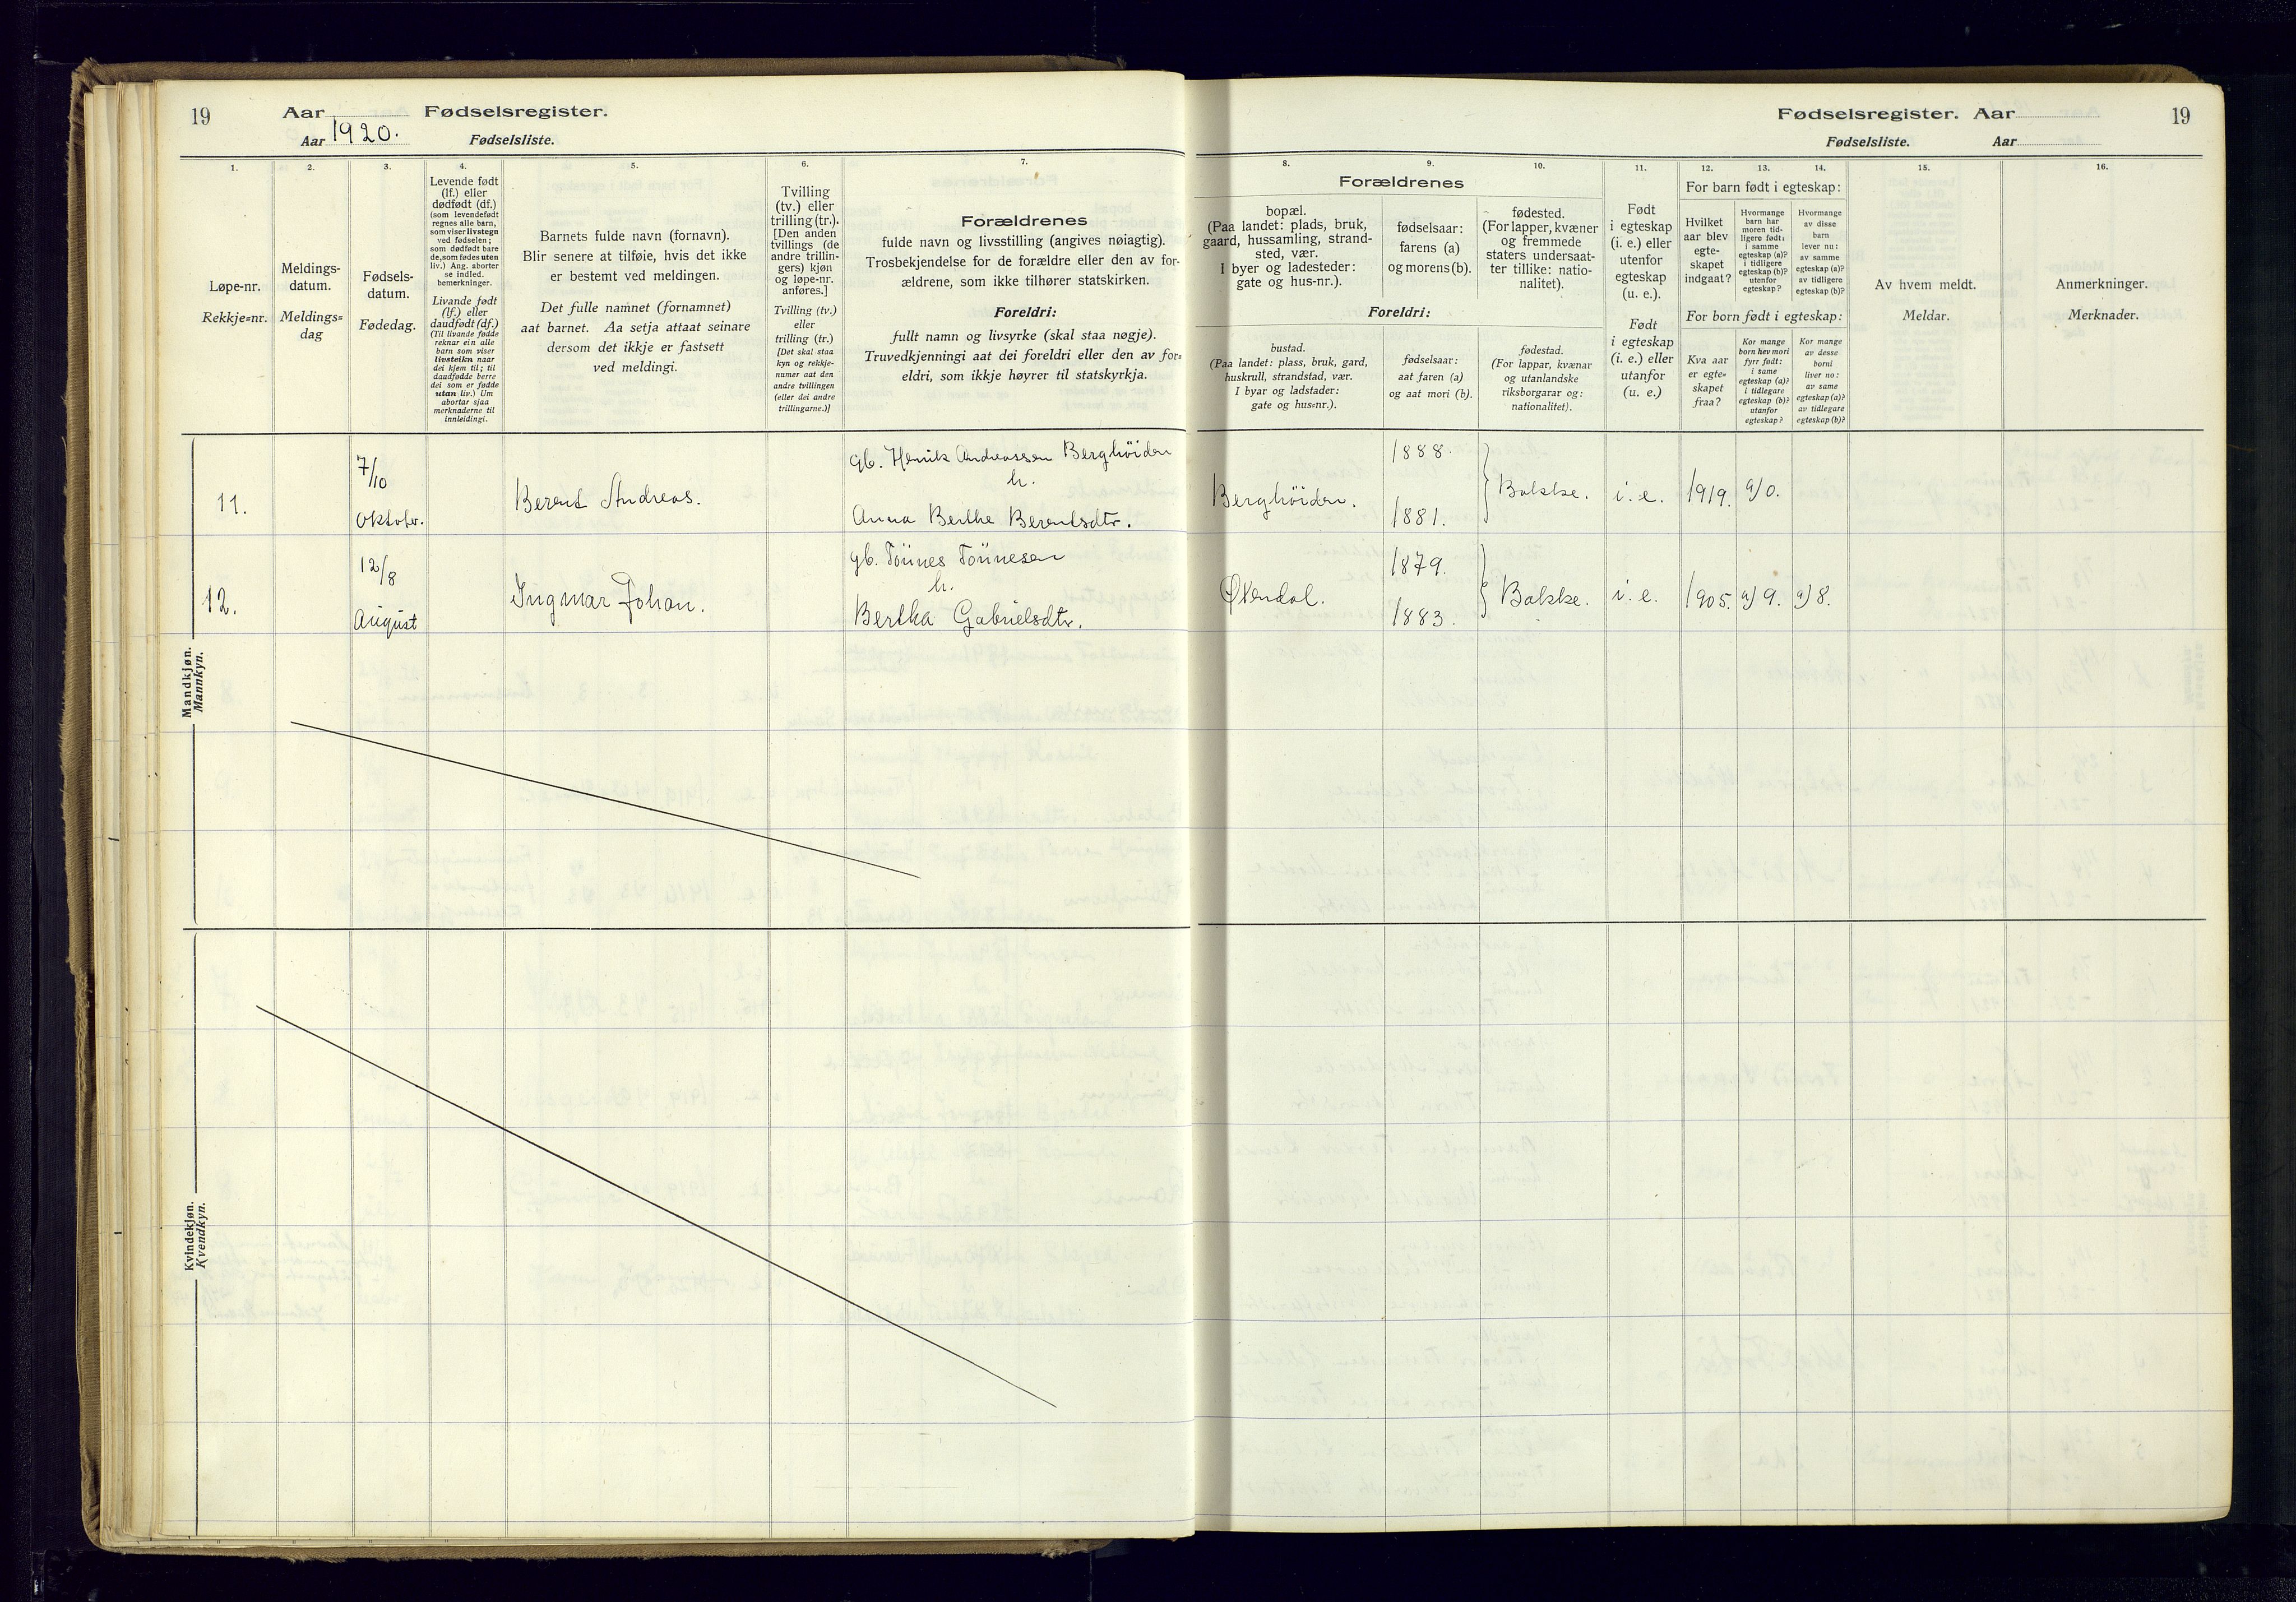 19
Aar
Fødselsregister.
Aar 1920.
Fødselsliste.
1.
2.
3.
4.
5.
6.
7.
Løpe-nr.
Rekkje=nr.
Meldings-
datum.
Meldings=
dag
Fødsels-
datum.
Fødedag.
Levende født
(lf.) eller
dødfødt (df.)
(som levendefødt
regnes alle barn,
som viser livstegn
ved fødselen;
som dødfødt bare
de, som fødes uten
liv.) Ang. aborter
se indled.
bemerkninger.
Livande født
(lf.) eller
daudfødt (df.)
(Til livande fødde
reknar ein alle
barn som viser
livsteikn naar
dei kjem til; til
daudfødde berre
dei som er fødde
utan liv.) Um
abortar sjaa
merknaderne til
innleidingi.
Barnets fulde navn (fornavn).
Blir senere at tilføie, hvis det ikke
er bestemt ved meldingen.
Det fulle namnet (fornamnet)
aat barnet. Aa setja attaat seinare
dersom det ikkje er fastsett
ved meldingi.
Tvilling
(tv.) eller
trilling (tr.).
[Den anden
tvillings (de
andre trillin-
gers) kjøn
og løpe-nr.
anføres.]
Tvilling (tv.)
eller
trilling (tr.)
[Det skal staa
kyn og rekkje-
numer aat den
andre tvillingen
(eller dei andre
trillingarne.)]
Forældrenes
fulde navn og livsstilling (angives nøiagtig).
Trosbekjendelse for de forældre eller den av for-
ældrene, som ikke tilhører statskirken.
Foreldri:
fullt namn og livsyrke (skal staa nøgje).
Truvedkjenningi aat dei foreldri eller den av for=
eldri, som ikkje høyrer til statskyrkja.
Mandkjøn.
Mannkyn.
11.
7/10
Oktober.
Berent Andreas.
gb. Henrik Andreassen Berghöiden
h.
Anna Berthe Berentsdtr.
12.
12/8
August
Ingmar Johan.
gb. Tönnes Tönnesen
h.
Bertha Gabrielsdtr.
Kvindekjøn.
Kvendkyn.
Fødselsregister. Aar
19
Fødselsliste.
Aar
8.
9.
10.
11.
12.
13.
14.
15.
16.
Forældrenes
bopæl.
(Paa landet: plads, bruk,
gaard, hussamling, strand-
sted, vær.
I byer og ladesteder:
gate og hus-nr.).
fødselsaar:
farens (a)
og morens (b).
fødested.
(For lapper, kvæner
og fremmede
staters undersaat-
ter tillike: natio-
nalitet).
Foreldri:
bustad.
(Paa landet: plass, bruk, gard,
huskrull, strandstad, vær.
I byar og ladstader:
gate og hus=nr.).
fødselsaar:
aat faren (a)
og aat mori (b).
fødestad.
(For lappar, kvænar
og utanlandske
riksborgarar og:
nationalitet).
Født
i egteskap
(i. e.) eller
utenfor
egteskap
(u. e.).
Født
i egteskap
(i. e.) eller
utanfor
egteskap
(u. e.)
For barn født i egteskap:
Hvilket
aar blev
egte-
skapet
indgaat?
Hvormange
barn har
moren tid-
ligere født:
i samme
egteskap (a)?
i tidligere
egteskap (b)?
utenfor
egteskap?
Hvormange
av disse
barn
lever nu:
av samme
egteskap (a)?
av tidligere
egteskap (b)?
For born født i egteskap:
Kva aar
er egte=
skapet
fraa?
Kor mange
born hev mori
fyrr født:
i same
egteskap (a)?
i tidlegare
egteskap (b)?
utanfor
egteskap?
Kor mange
av desse
borni
liver no:
av same
egteskap (a)?
av tidlegare
egteskap (b)?
Av hvem meldt.
Meldar.
Anmerkninger.
Merknader.
Berghöiden.
1888.
1881.
Bakke.
i. e.
1919.
a) 0.
Økendal.
1879.
1883.
Bakke.
i. e.
1905.
a) 9.
a) 8.